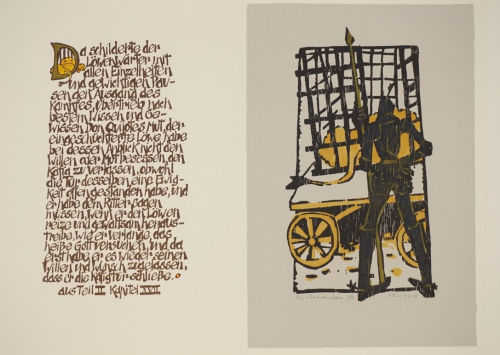 Da schilderte der
Löwenwärter mit
allen Einzelheiten
und gewichtigen Pau-
sen den Ausgang des
Kampfes, übertrieb nach
bestem Wissen und Ge-
wissen Don Quijotes Mut, der
eingeschüchterte Löwe habe
bei dessen Anblick nicht den
Willen oder Mut besessen, den
Käfig zu verlassen, obwohl
die Tür desselben eine Ewig-
keit offen gestanden habe, und
er habe dem Ritter sagen
müssen, wenn er den Löwen
reize und gewaltsam heraus-
treibe, wie er verlange, das
heiße Gott versuchen, und da
erst habe er es wieder seinen
Willen und Wunsch zugelassen,
dass er die Käfigtür schließe.
aus Teil II Kapitel XVII